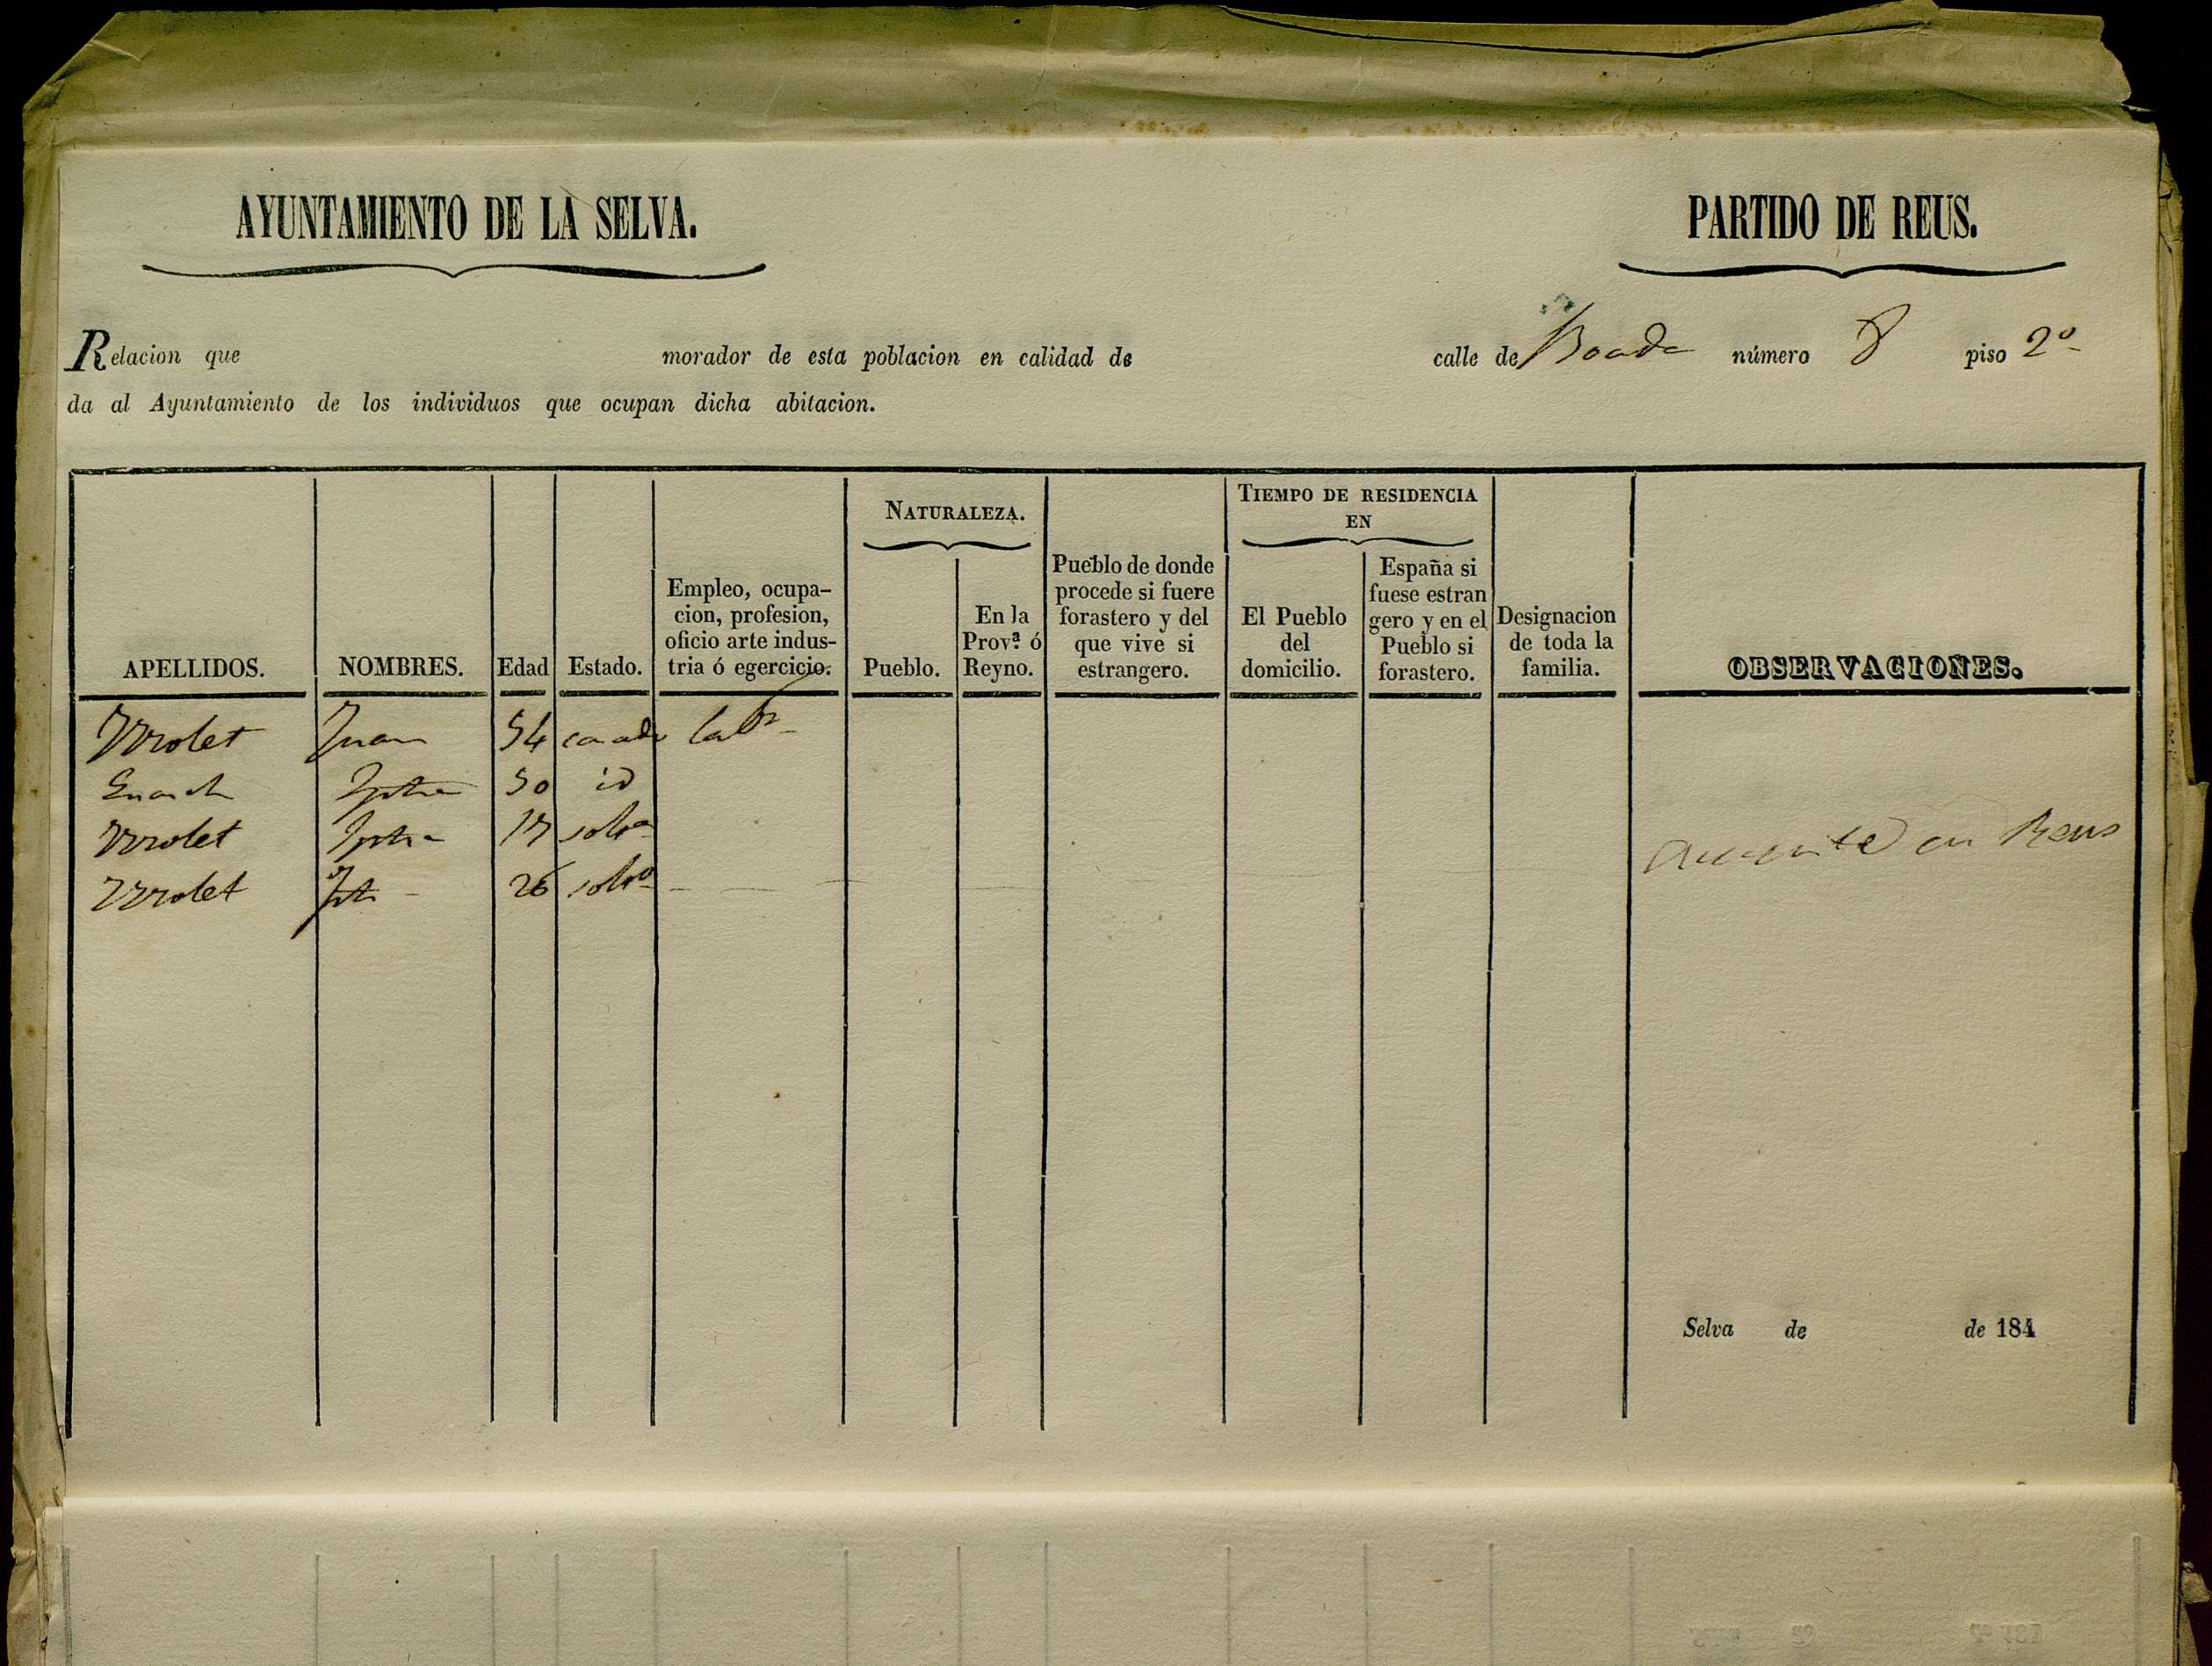 AYUNTAMIENTO DE LA SELVA. PARTIDO DE REUS.
Relacion que morador de esta poblacion en calidad de calle de Boada número 8 piso 2º
da al Ayuntamiento de los individuos que ocupan dicha abitacion.
APELLIDOS. NOMBRES. Edad Estado. Empleo, ocupa-
cion, profesion,
oficio arte indus-
tria ó egercicio. NATURALEZA.
Pueblo. En la
Provª ó
Reyno. Pueblo de donde
procede si fuere
forastero y del
que vive si
estrangero. TIEMPO DE RESIDENCIA
EN
El Pueblo
del
domicilio. España si
fuese estran
gero y en el
Pueblo si
forastero. Designacion
de toda la
familia. OBSERVACIONES.
Juan 54 casado labr
50 id
17 solra
26 solro en Reus
Selva de de 184